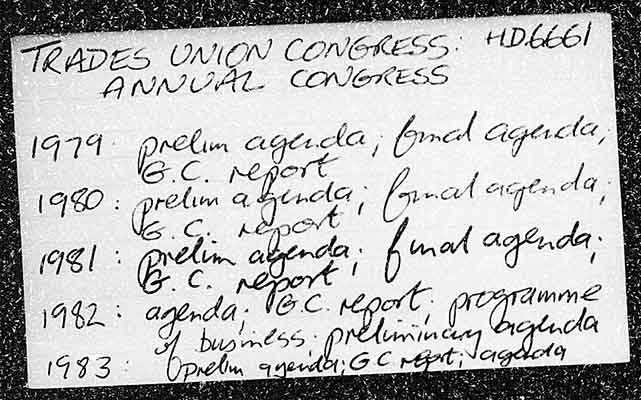 TRADES UNION CONGRESS: HD.6661
ANNUAL CONGRESS
1979: prelim agenda; final agenda;
G.C. report
1980: prelim agenda; final agenda;
G.C. report
1981: prelim agenda; final agenda;
G.C. report;
1982: agenda; G.C. report; programme
of business; preliminary agenda
1983: prelim agenda; G C report; agenda